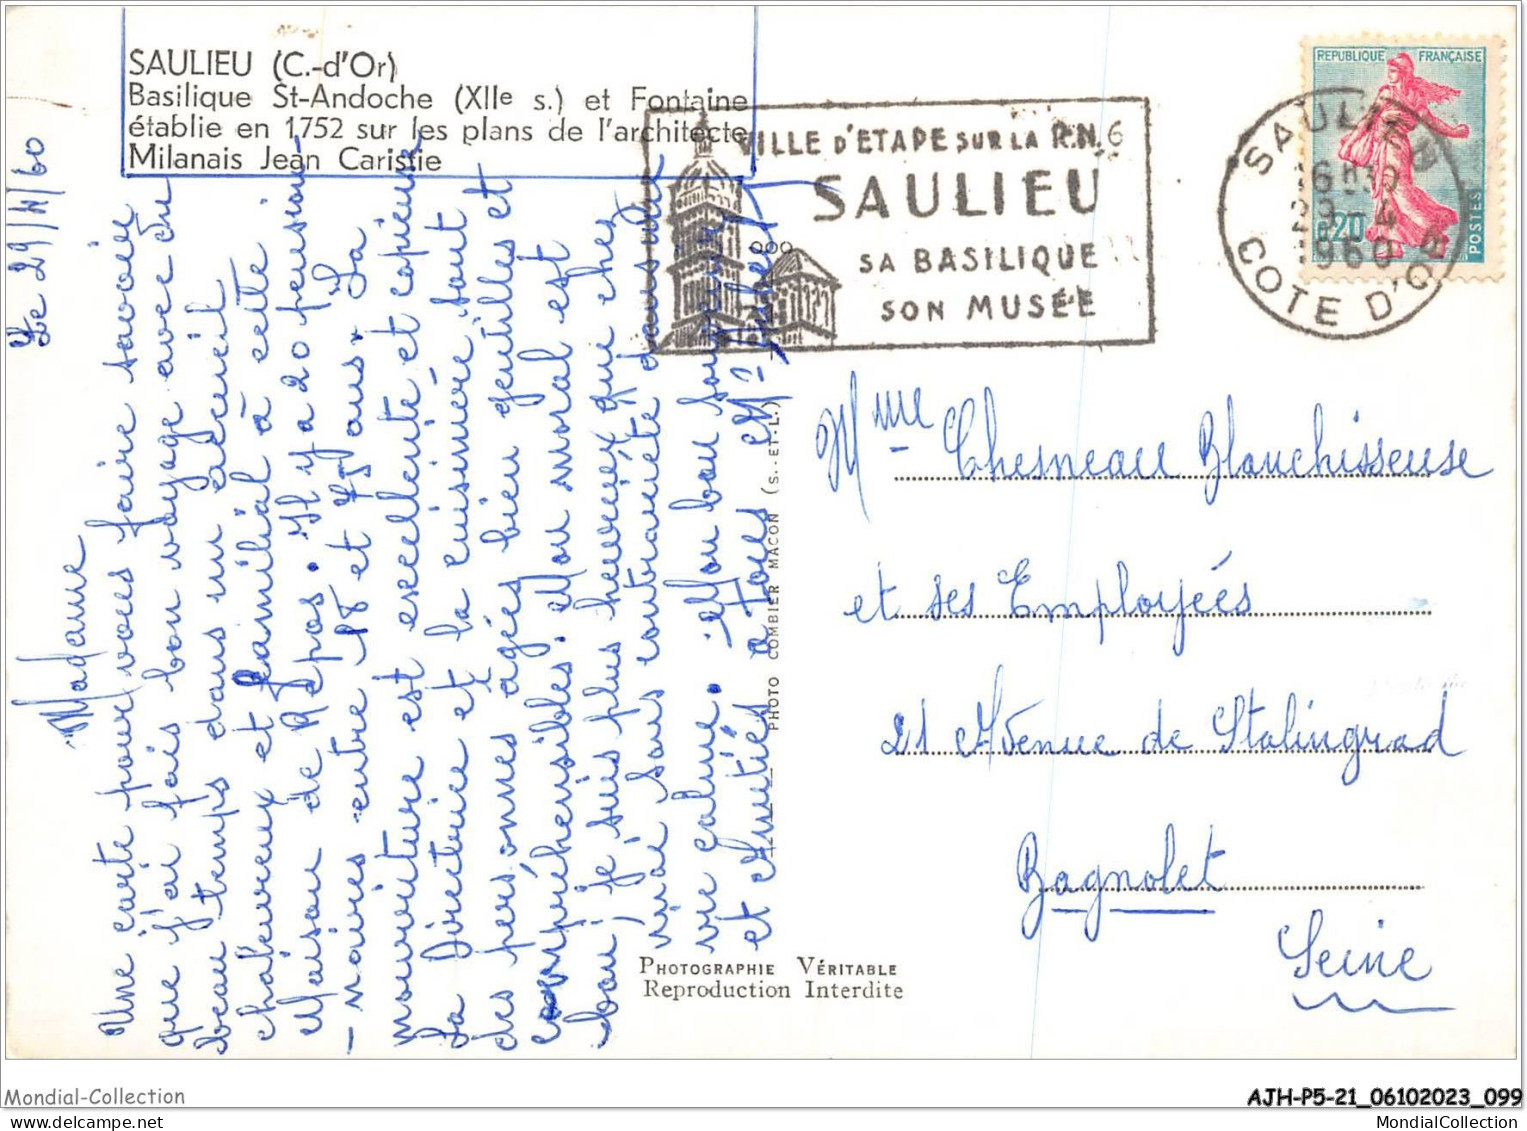 SAULIEU (C.-d'Or)
Basilique St-Andoche (XIIe s.) et Fontaine
établie en 1752 sur les plans de l'architecte
Milanais Jean Caristie
VILLE D'ETAPE SUR LA R.N.6
SAULIEU
SA BASILIQUE
SON MUSÉE
REPUBLIQUE FRANÇAISE
0,20
POSTES
SAULIEU
16H30
29-4
1960
COTE D'OR
Le 29/4/60
Madame
Une carte pour vous faire savoir
que j'ai fais bon voyage avec du
beau temps dans un acceuil
chaleureux et familial à cette
Maison de Repos. Il y a 20 pension-
-naires entre 18 et 75 ans. La
nourriture est excellente et copieuse
La Directrice et la cuisinière sont
des personnes agés bien gentilles et
compréhensibles. Mon moral est
bon, je suis plus heureux que chez
moi sans contrariété dans une
vie calme. Mon bon souvenir
et Amitiés a Tous
PHOTO COMBIER MACON (S.-ET-L.)
Mme Chesneau Blanchisseuse
et ses Employées
21 Avenue de Stalingrad
Bagnolet
Seine
PHOTOGRAPHIE VÉRITABLE
Reproduction Interdite
Mondial-Collection
AJH-P5-21_06102023_099
MondialCollection